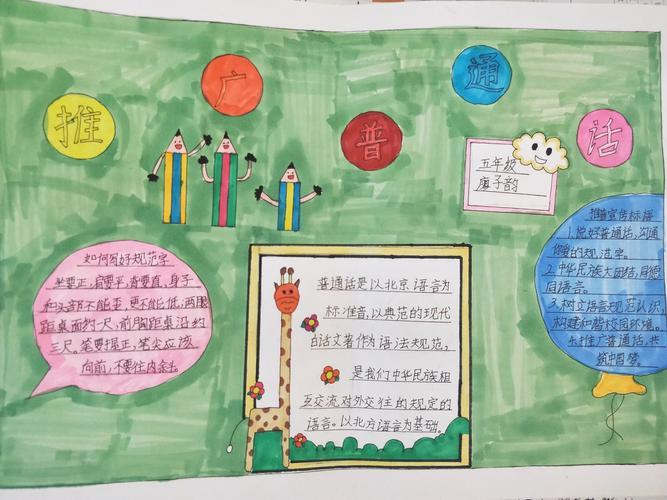 推
广
普
通
话
五年级
康子韵
如何写好规范字
坐要正,肩要平,背要直,身子
和头部不能歪,更不能低,两眼
距桌面约尺,前胸距桌沿约
三尺。笔要握正,笔尖应该
向前,不要往内斜
普通话是以北京语言为
标准音,以典范的现代
白话文著作为语法规范,
是我们中华民族相
互交流对外交往的规定的
语言。以北方语言为基础。
推普宣传标语
1.说好普通话,沟通
你我的规范字。
2.中华民族大团结,同德
同语言。
3.树立语言规范认识,
构建和谐校园环境。
4.推广普通话,共
筑中国梦。